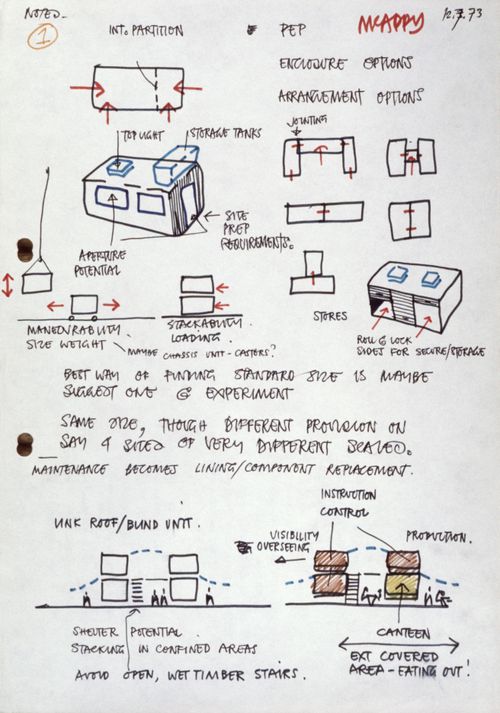 NOTED
1
INT. PARTITION
PEP
McAPPY
12.7.73
ENCLOSURE OPTIONS
ARRANGEMENT OPTIONS
JOINTING
TOPLIGHT
STORAGE TANKS
SITE
PREP
REQUIREMENTS.
APERTURE
POTENTIAL
MANEOUVRABILITY.
SIZE WEIGHT
MAYBE CHASSIS UNIT - CASTERS?
STACKABILITY.
LOADING.
STORES
ROLL & LOCK
SIDES FOR SECURE/STORAGE
BEST WAY OF FINDING STANDARD SIZE IS MAYBE
SUGGEST ONE & EXPERIMENT
SAME SIZE, THOUGH DIFFERENT PROVISION ON
SAY 4 SITES OF VERY DIFFERENT SCALES.
MAINTENANCE BECOMES LINING/COMPONENT REPLACEMENT.
LINK ROOF/BLIND UNIT.
INSTRUCTION
CONTROL
VISIBILITY
OVERSEEING
PRODUCTION.
SHELTER POTENTIAL.
STACKING IN CONFINED AREAS
AVOID OPEN, WET TIMBER STAIRS.
CANTEEN
EXT COVERED
AREA - EATING OUT!